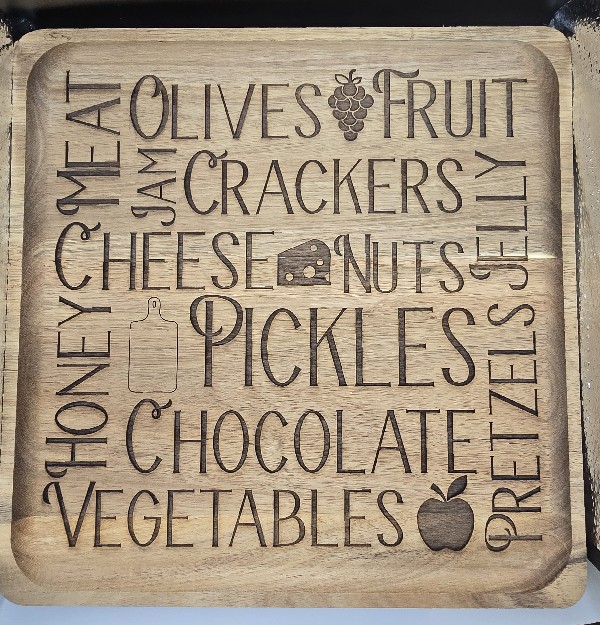 Meat
Olives Fruit
Jam
Crackers
Jelly
Cheese Nuts
Honey
Pickles
Pretzels
Chocolate
Vegetables